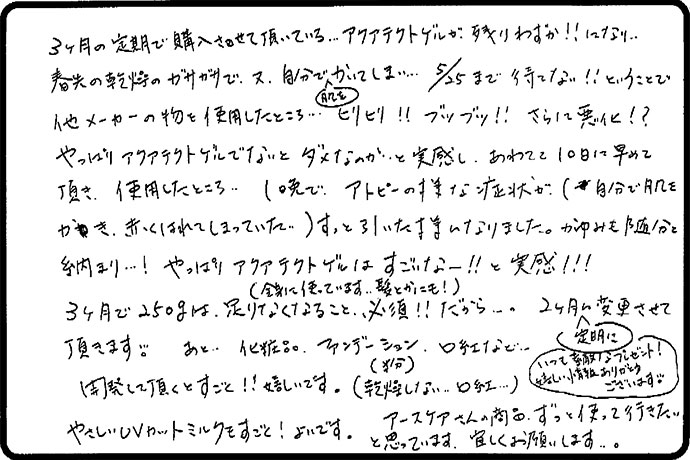 3ヶ月の定期で購入させて頂いている… アクアテクトゲルが残りわずか!! になり…
春先の乾燥のガサガサで、又、自分で肌をかいてしまい… 5/25まで待てない!! ということで
他メーカーの物を使用したところ… ピリピリ!! ブツブツ!! さらに悪化!?
やっぱりアクアテクトゲルでないとダメなのか…と実感し、あわてて10日に早めて
頂き、使用したところ… 1晩で、アトピーの様な症状が、(自分で肌を
かき、赤くはれてしまっていた…)すっと引いた様になりました。かゆみも随分と
納まり…! やっぱりアクアテクトゲルはすごいなー!! と実感!!!
(全身に使っています…髪とかにも!)
3ヶ月で250gは、足りなくなること、必須!! だから…。 2ヶ月に変更させて
頂きます。 定期に
あと… 化粧品、ファンデーション、口紅など…
(粉)
開発して頂くとすごく!! 嬉しいです。(乾燥しない…口紅…)
いつも素敵なプレゼント!
嬉しい情報ありがとう
ございます。
やさしいUVカットミルクもすごく! よいです。
アースケアさんの商品、ずっと使って行きたい
と思っています。宜しくお願いします…。